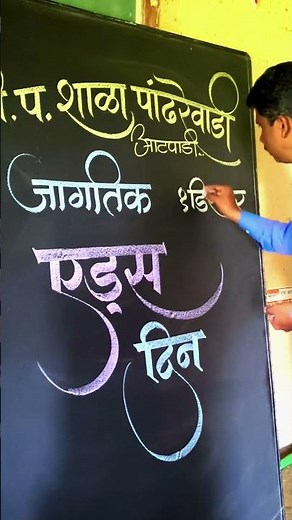 प. शाळा पांढरेवाडी
आटपाडी..
जागतिक १डि
एड्स
दिन